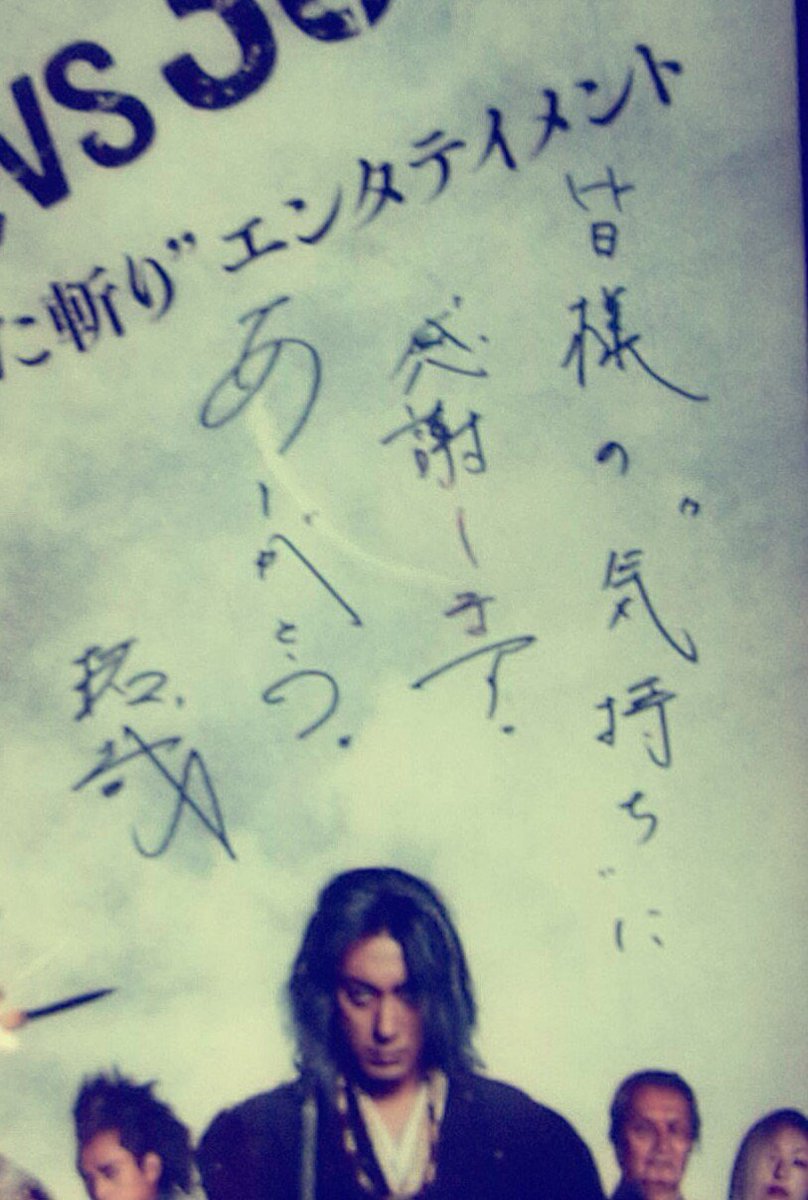 VS
た斬り”エンタテイメント
皆様の“気持ち”に
感謝します。
ありがとう。
拓哉